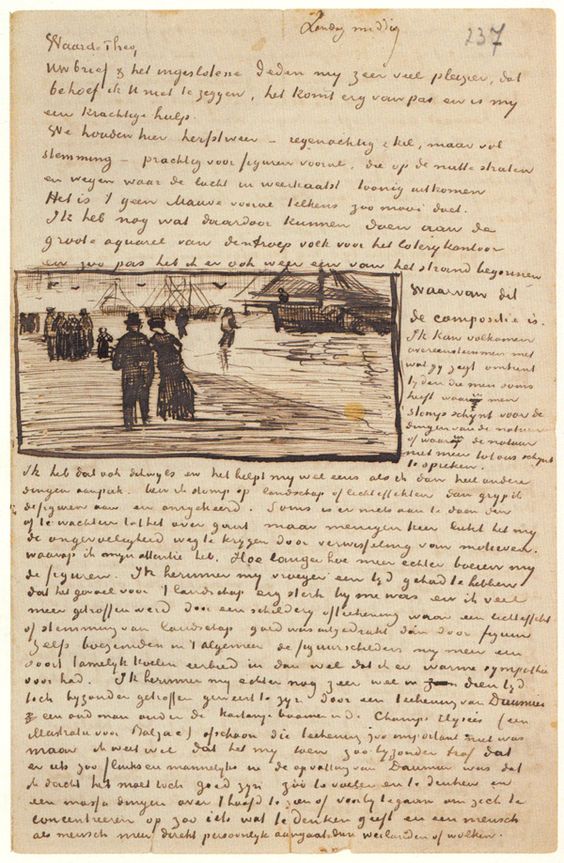 Zondag middag
237
Waarde Theo,
Uw brief & het ingeslotene deden my zeer veel plezier, dat
behoef ik U niet te zeggen, het komt erg van pas en is my
een krachtige hulp.
We houden hier herfstweer – regenachtig & kil, maar vol
stemming – prachtig voor figuren vooral, die op de natte straten
en wegen waar de lucht in weerkaatst toonig uitkomen
Het is 't geen Mauve vooral telkens zoo mooi doet.
Ik heb nog wat daardoor kunnen doen aan de
groote aquarel van den troep volk voor het loterykantoor
en zoo pas heb ik er ook weer een van het strand begonnen
waarvan dit
de compositie is.
Ik kan volkomen
overeenstemmen met
wat gy zegt omtrent
tyden die men soms
heeft waarin men
stomp schynt voor de
dingen van de natuur
of waarin de natuur
niet meer tot ons schynt
te spreken.
Ik heb dat ook dikwyls en het helpt my wel eens als ik dan heel andere
dingen aanpak. Ben ik stomp op landschap of lichteffekten dan gryp ik
de figuren aan en omgekeerd. Soms is er niets aan te doen dan
af te wachten tot het over gaat maar menigen keer lukt het my
de ongevoeligheid weg te krygen door verwisseling van motieven
waarop ik myn attentie heb. Hoe langer hoe meer echter boeien my
de figuren. Ik herinner my vroeger een tyd gehad te hebben
dat het gevoel voor 't landschap erg sterk by me was en ik veel
meer getroffen werd door een schildery of teekening waar een lichteffekt
of stemming van landschap goed was uitgedrukt dan door figuur
Zelfs boezemden in 't algemeen de figuurschilders my meer een
soort tamelyk koelen eerbied in dan wel dat ik er warme sympathie
voor had. Ik herinner my echter nog zeer wel in dien tyd
toch byzonder getroffen geweest te zyn door een teekening van Daumier
een oud man onder de kastanjeboomen in de Champs Elysées (een
illustratie voor Balzac) ofschoon die teekening zoo important niet was
maar ik weet wel dat het my toen zoo byzonder trof dat
er iets zoo flinks en mannelyks in de opvatting van Daumier was dat
ik dacht het moet toch goed zyn zóó te voelen en te denken en
een massa dingen over 't hoofd te zien of voorby te gaan om zich te
concentreeren op zoo iets wat te denken geeft en een mensch
als mensch meer direkt persoonlyk aangaat dan weilanden of wolken.